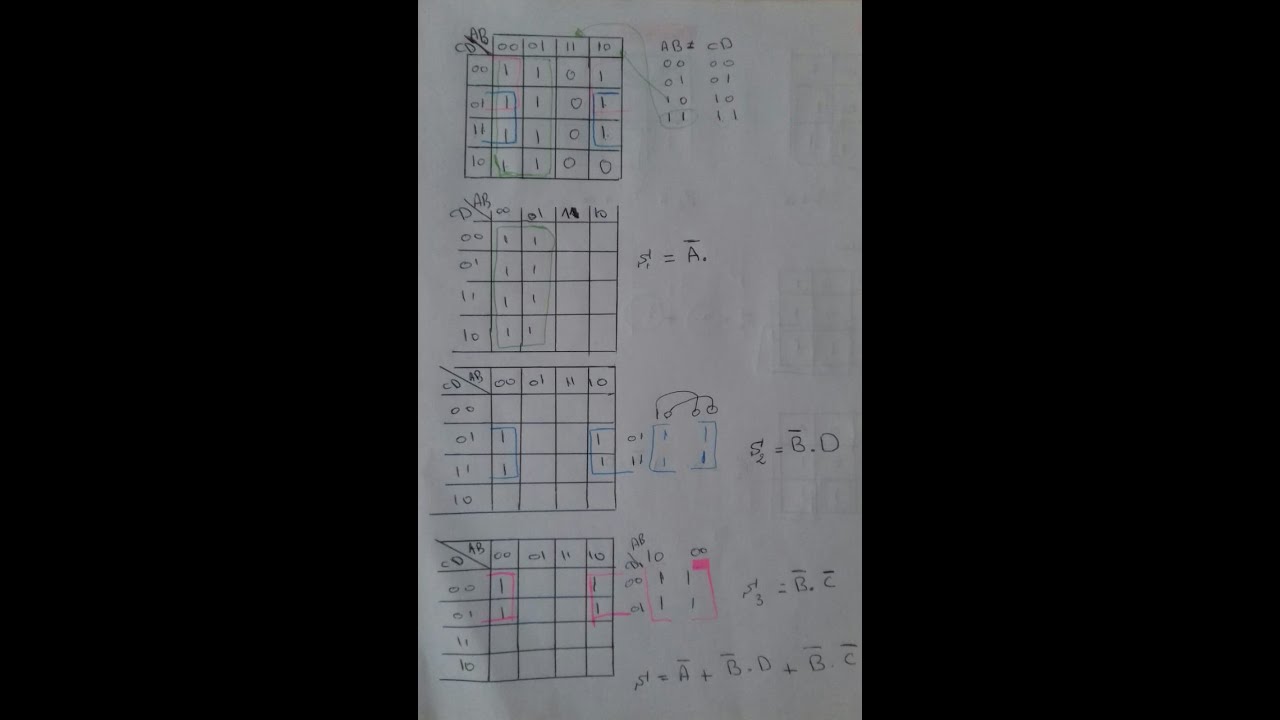 AB
CD 00 01 11 10 AB = CD
00 1 1 0 1 00 00
01 1 1 0 1 01 01
11 1 1 0 1 10 10
10 1 1 0 0 11 11
AB
CD 00 01 11 10
00 1 1
01 1 1
11 1 1
10 1 1
S1 = A̅.
CD AB 00 01 11 10
00 10 00
01 1 1 01 1 1
11 1 1 11 1 1
10
S2 = B̅.D
CD AB 00 01 11 10 AB 10 00
00 1 1 00 1 1
01 1 1 01 1 1
11
10
S3 = B̅.C̅
S = A̅ + B̅.D + B̅.C̅